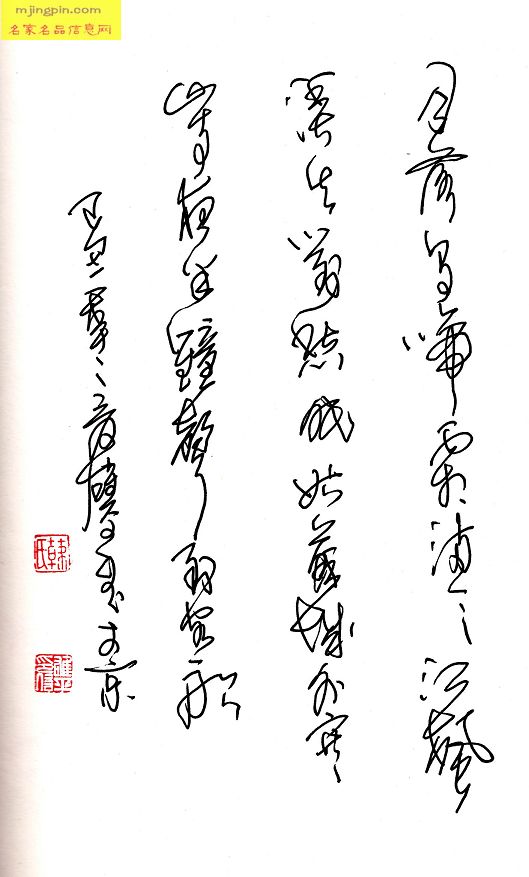 mjingpin.com
名家名品信息网
月落烏啼霜滿天江楓
漁火對愁眠姑蘇城外寒
山寺夜半鐘聲到客船
韓氏